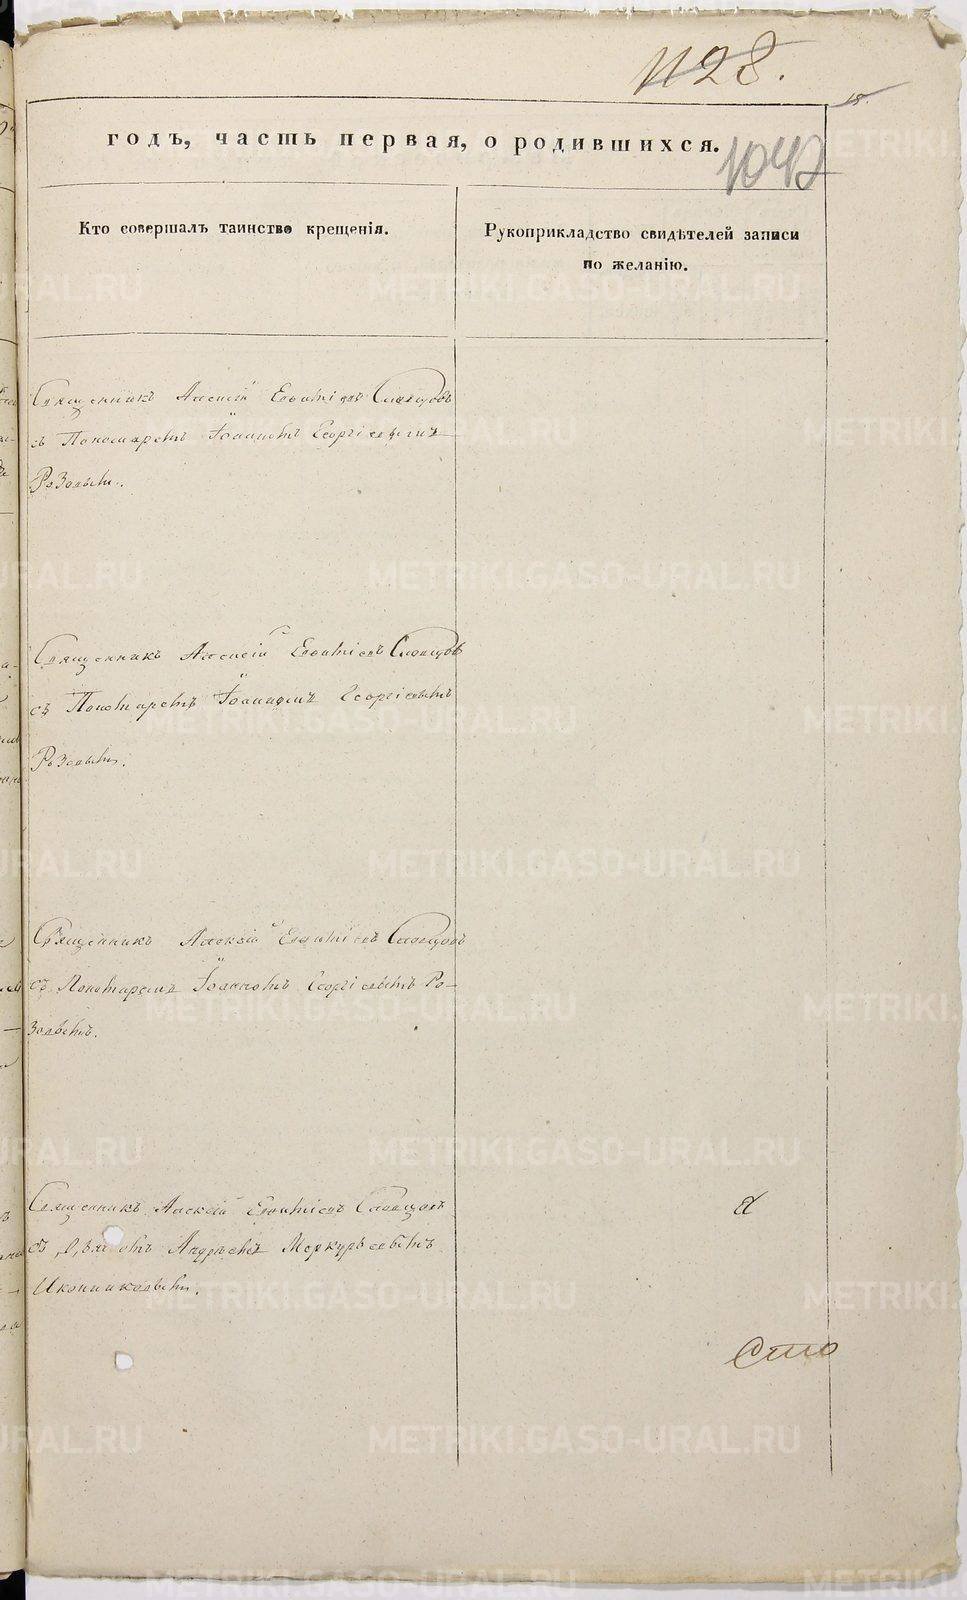 1128.
15.
годъ, часть первая, о родившихся.
1042
Кто совершалъ таинство крещенія.
Рукоприкладство свидѣтелей записи
по желанію.
Священникъ Алексій Евфиміевъ Словцовъ
съ Пономаремъ Іоанномъ Георгіевымъ
Розовымъ.
Священникъ Алексій Евфиміевъ Словцовъ
съ Пономаремъ Іоанномъ Георгіевымъ
Розовымъ.
Священникъ Алексій Евфиміевъ Словцовъ
съ Пономаремъ Іоанномъ Георгіевымъ Ро-
зовымъ.
Священникъ Алексій Евфиміевъ Словцовъ
съ Андреемъ Меркурьевымъ
Иконниковымъ.
Сто
METRIKI.GASO-URAL.RU